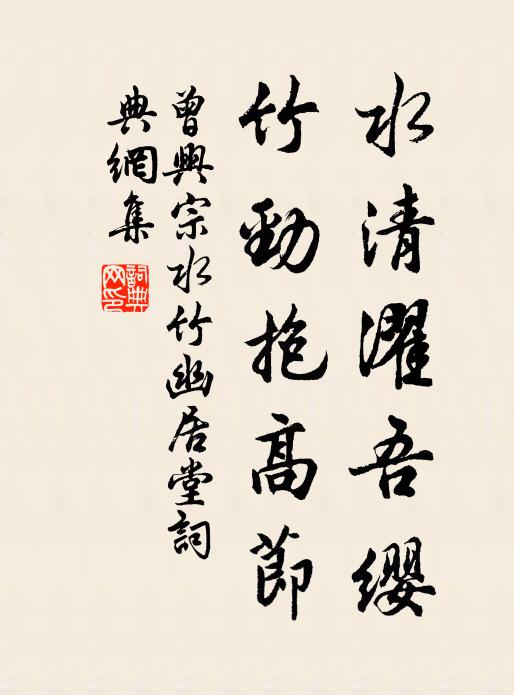 水清濯吾纓
竹勁抱高節
曾興宗水竹幽居堂詞
典網集
詞典网印